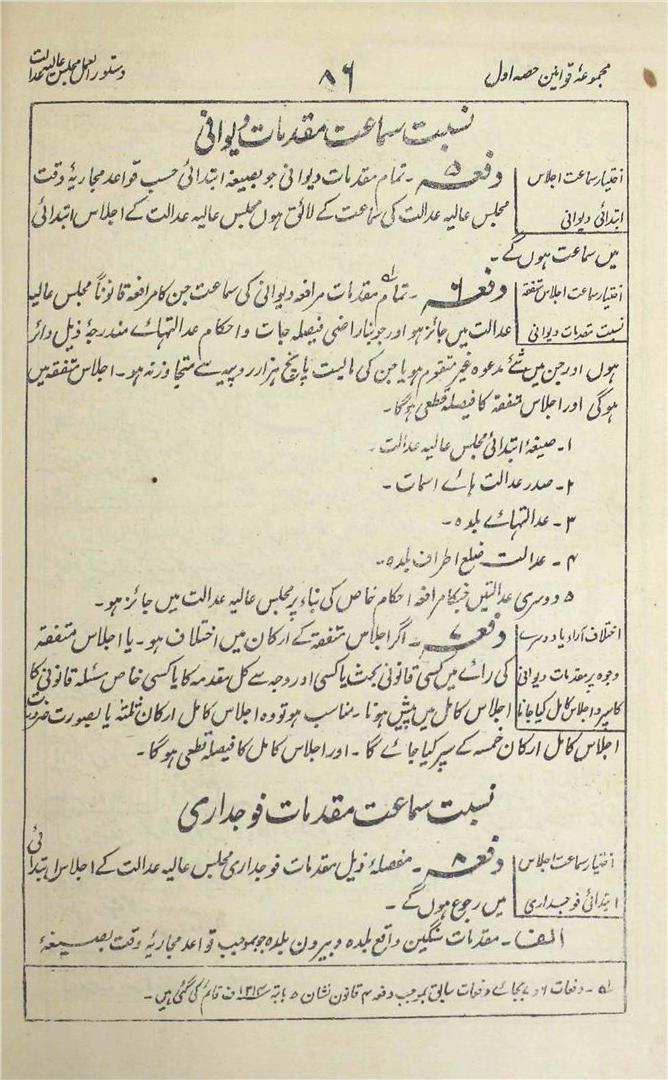 مجموعۂ قوانین حصہ اول
۸۶
دستور العمل مجلس عالیہ عدالت
نسبت سماعت مقدمات دیوانی
اختیار سماعت اجلاس
ابتدائی دیوانی
دفعہ ۵ ۔ تمام مقدمات دیوانی جو بصیغہ ابتدائی حسب قواعد مجاریۂ وقت
مجلس عالیہ عدالت کی سماعت کے لائق ہوں مجلس عالیہ عدالت کے اجلاس ابتدائی
میں سماعت ہوں گے ۔
اختیار سماعت اجلاس متفقہ
نسبت مقدمات دیوانی
دفعہ ۶ ۔ تمام مقدمات مرافعہ دیوانی کی سماعت جن کا مرافعہ قانوناً مجلس عالیہ
عدالت میں جائز ہو اور جو بناراضی فیصلہ جات و احکام عدالتہائے مندرجۂ ذیل دائر
ہوں اور جن میں شئے مدعوہ غیر متقوم ہو یا جن کی مالیت پانچ ہزار روپیہ سے متجاوز نہ ہو ۔ اجلاس متفقہ میں
ہوگی اور اجلاس متفقہ کا فیصلہ قطعی ہوگا ۔
۱ ۔ صیغۂ ابتدائی مجلس عالیہ عدالت ۔
۲ ۔ صدر عدالت ہائے اسمات ۔
۳ ۔ عدالتہائے بلدہ ۔
۴ ۔ عدالت ضلع اطراف بلدہ ۔
۵ دوسری عدالتیں جنکا مرافعہ احکام خاص کی بناء پر مجلس عالیہ عدالت میں جائز ہو ۔
اختلاف آراء یا دوسرے
وجوہ پر مقدمات دیوانی
کا سپرد اجلاس کامل کیا جانا
دفعہ ۷ ۔ اگر اجلاس متفقہ کے ارکان میں اختلاف ہو ۔ یا اجلاس متفقہ
کی رائے میں کسی قانونی بحث یا کسی اور وجہ سے کل مقدمہ کا یا کسی خاص مسئلہ قانونی کا
اجلاس کامل میں پیش ہونا ۔ مناسب ہو تو وہ اجلاس کامل ارکان ثلثہ یا بصورت ضرورت
اجلاس کامل ارکان خمسہ کے سپرد کیا جائے گا ۔ اور اجلاس کامل کا فیصلہ قطعی ہوگا ۔
نسبت سماعت مقدمات فوجداری
اختیار سماعت اجلاس
ابتدائی فوجداری
دفعہ ۸ ۔ مفصلۂ ذیل مقدمات فوجداری مجلس عالیہ عدالت کے اجلاس ابتدائی
میں رجوع ہوں گے ۔
الف ۔ مقدمات سنگین واقع بلدہ و بیرون بلدہ جو بموجب قواعد مجاریۂ وقت بصیغۂ
لہ ۔ دفعات ۶ و ۷ بجائے دفعات سابق بموجب دفعہ ۳ قانون نشان ۵ بابتہ ف قائم کی گئی ہیں ۔